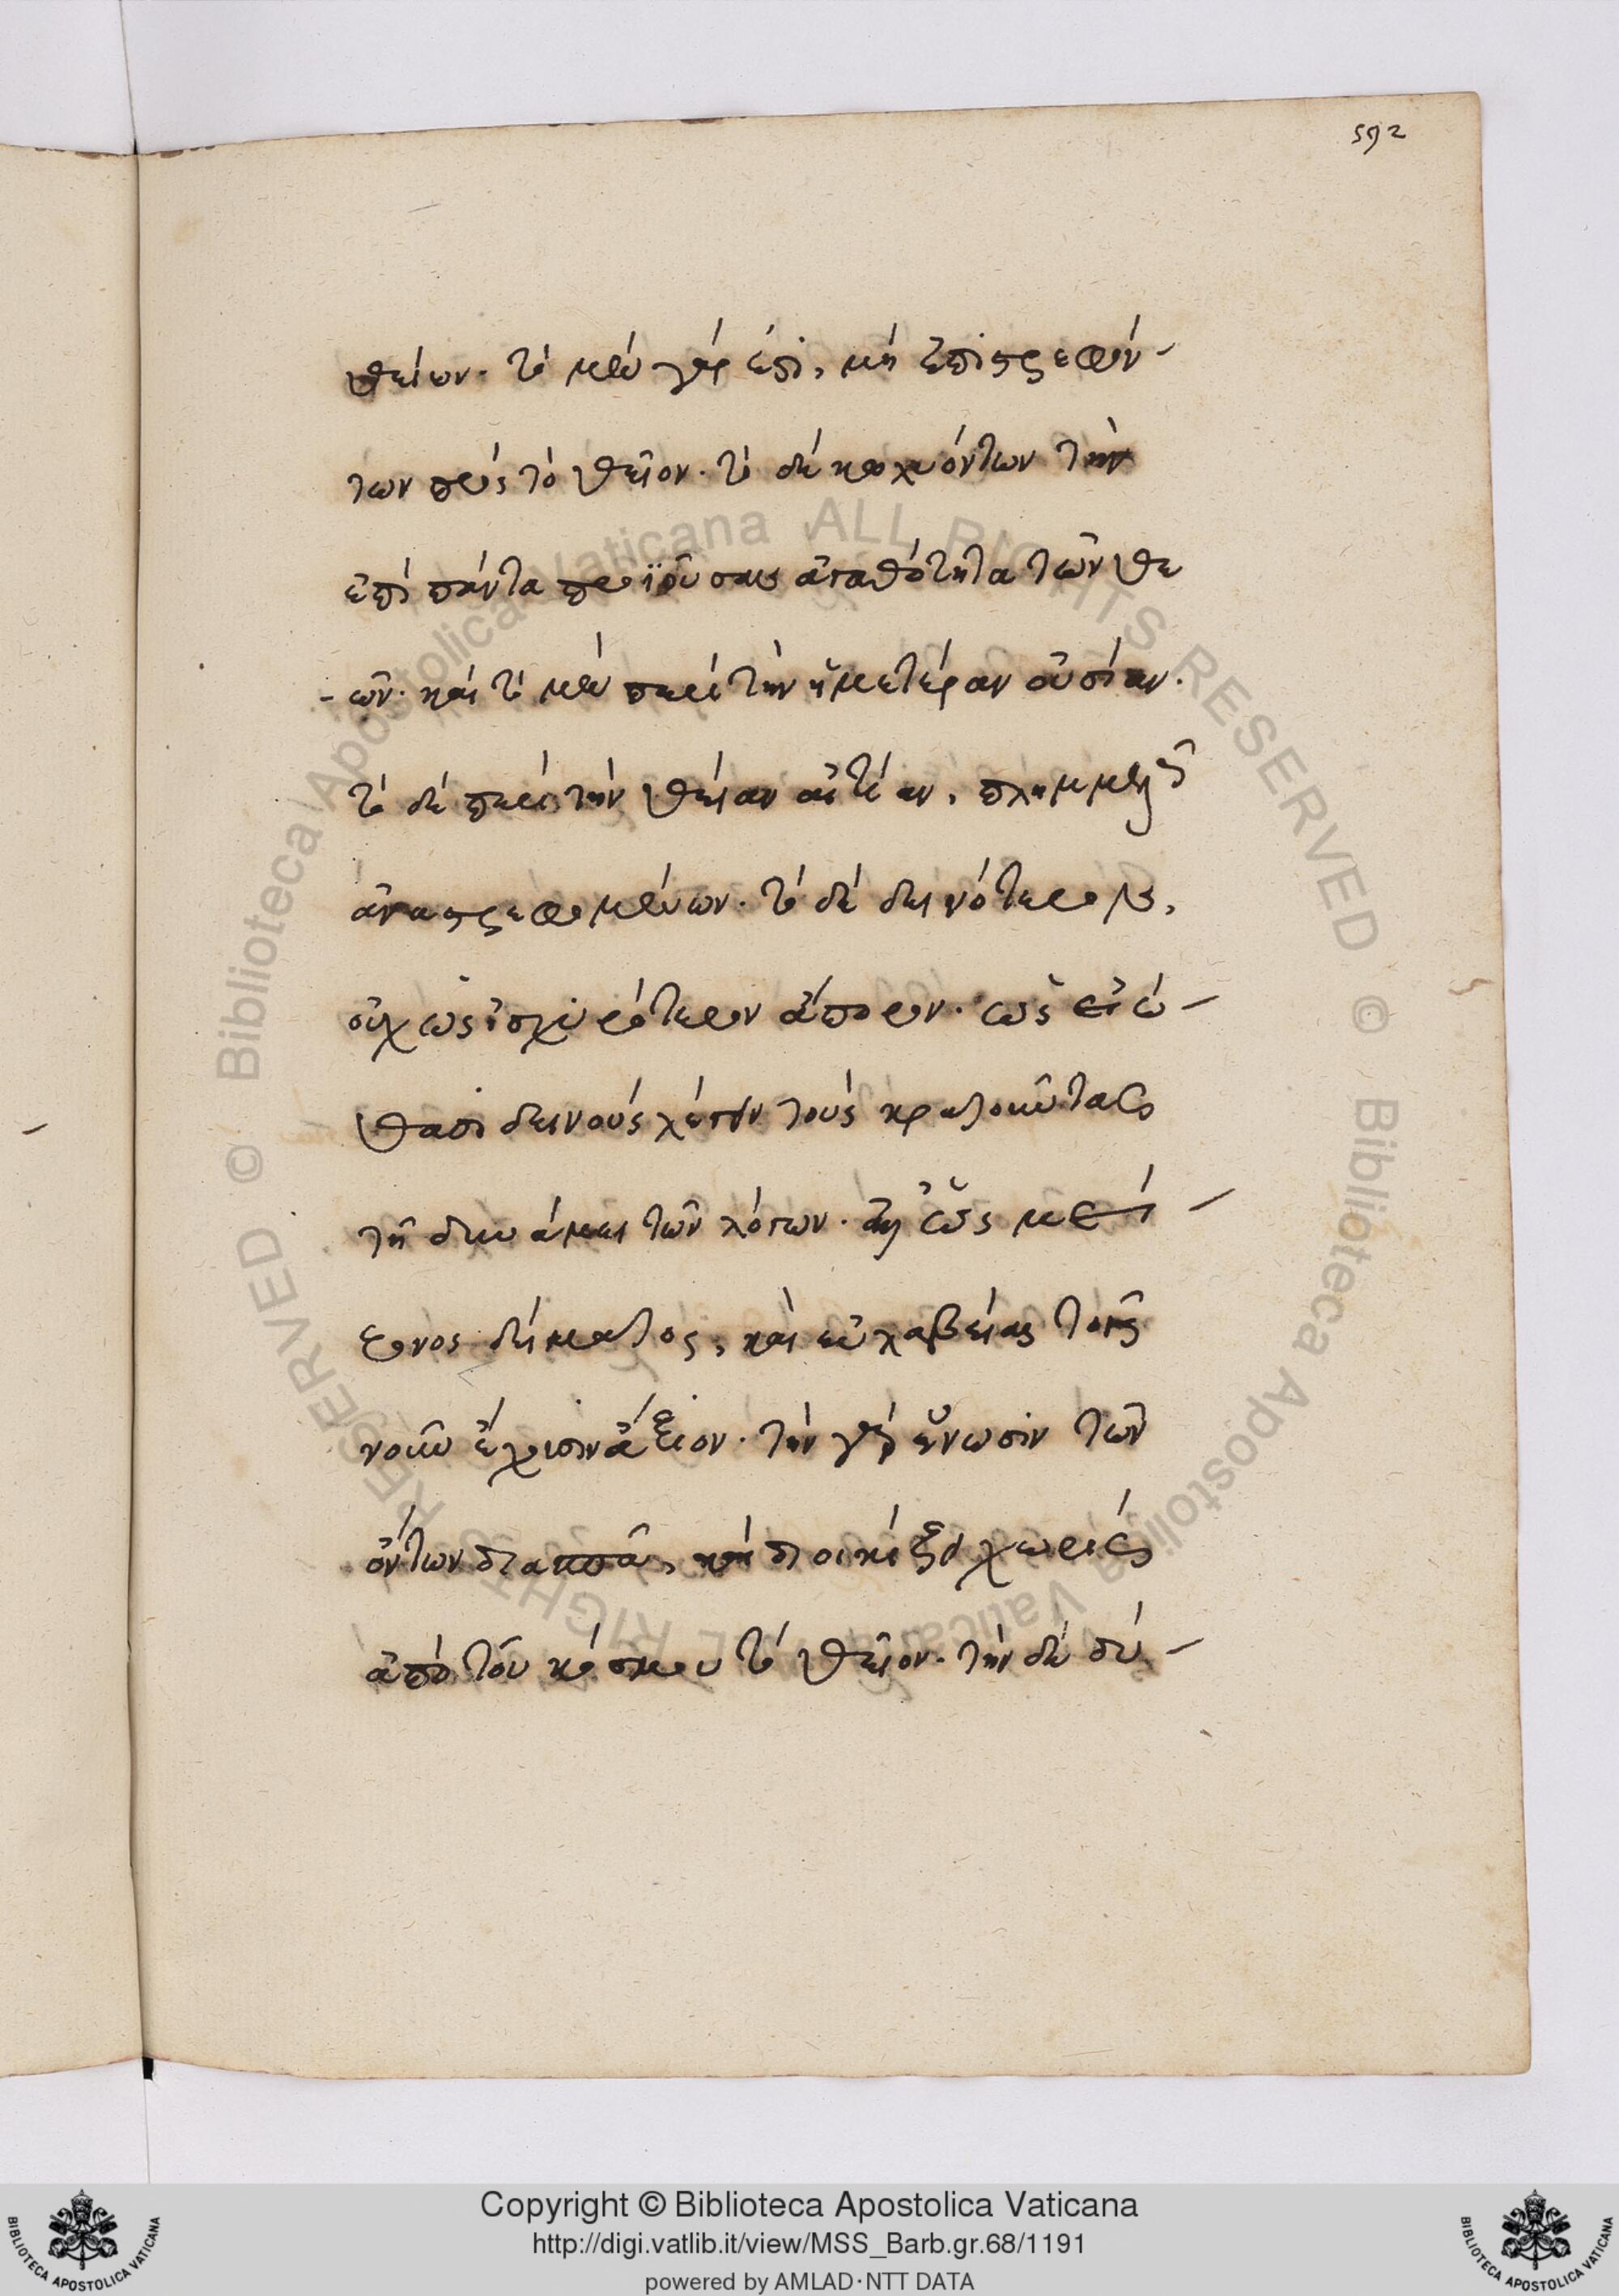 592
θείων· τὸ μὲν γάρ ἐστι, μὴ ἐπιστρεφόν-
των πρὸς τὸ θεῖον· τὸ δὲ κωλυόντων τὴν
ἐπὶ πάντα προϊοῦσαν ἀγαθότητα τῶν θε
-ῶν· καὶ τὸ μὲν περὶ τὴν ἡμετέραν οὐσίαν·
τὸ δὲ περὶ τὴν θείαν αἰτίαν, πλημμελῶς
ἀναστρεφομένων· τὸ δὲ δεινότερον,
οὐχ ὡς ἰσχυρότερον ἄπορον· ὡς εἰώ-
θασι δεινοὺς λέγειν τοὺς κρατοῦντας
τῇ δυνάμει τῶν λόγων· ἀλλ' ὡς μεί-
ζονος δείματος, καὶ εὐλαβείας τοῖς
νοῦν ἔχουσιν ἄξιον· τὴν γὰρ ἕνωσιν τῶν
ὄντων διασπᾷ, καὶ διοικίζει χωρὶς
ἀπὸ τοῦ κόσμου τὸ θεῖον· τὴν δὲ δύ-
Copyright © Biblioteca Apostolica Vaticana
http://digi.vatlib.it/view/MSS_Barb.gr.68/1191
powered by AMLAD·NTT DATA
BIBLIOTECA APOSTOLICA VATICANA
BIBLIOTECA APOSTOLICA VATICANA
© Biblioteca Apostolica Vaticana ALL RIGHTS RESERVED
© Biblioteca Apostolica Vaticana ALL RIGHTS RESERVED